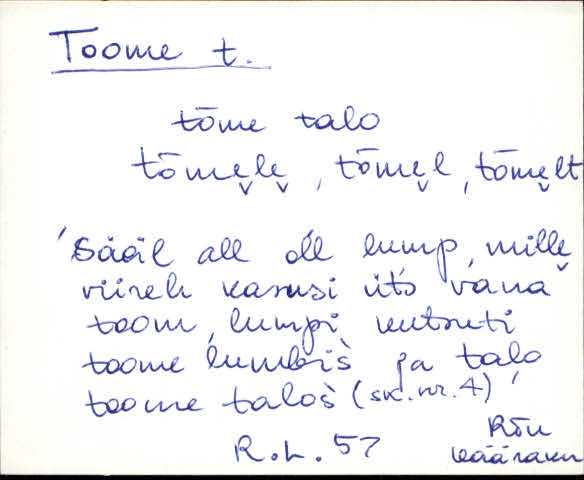 Toome t.
tōme talo
tōmele̬, tōme̬l, tōme̬lt
'Sääl all oĺl lump, mille̬
viireh kasusi üt's vana
toom, lumpi kutsuti
toome lumbis ja talo
toome talos (sk. nr. 4)'
R.L. 57
Rõu